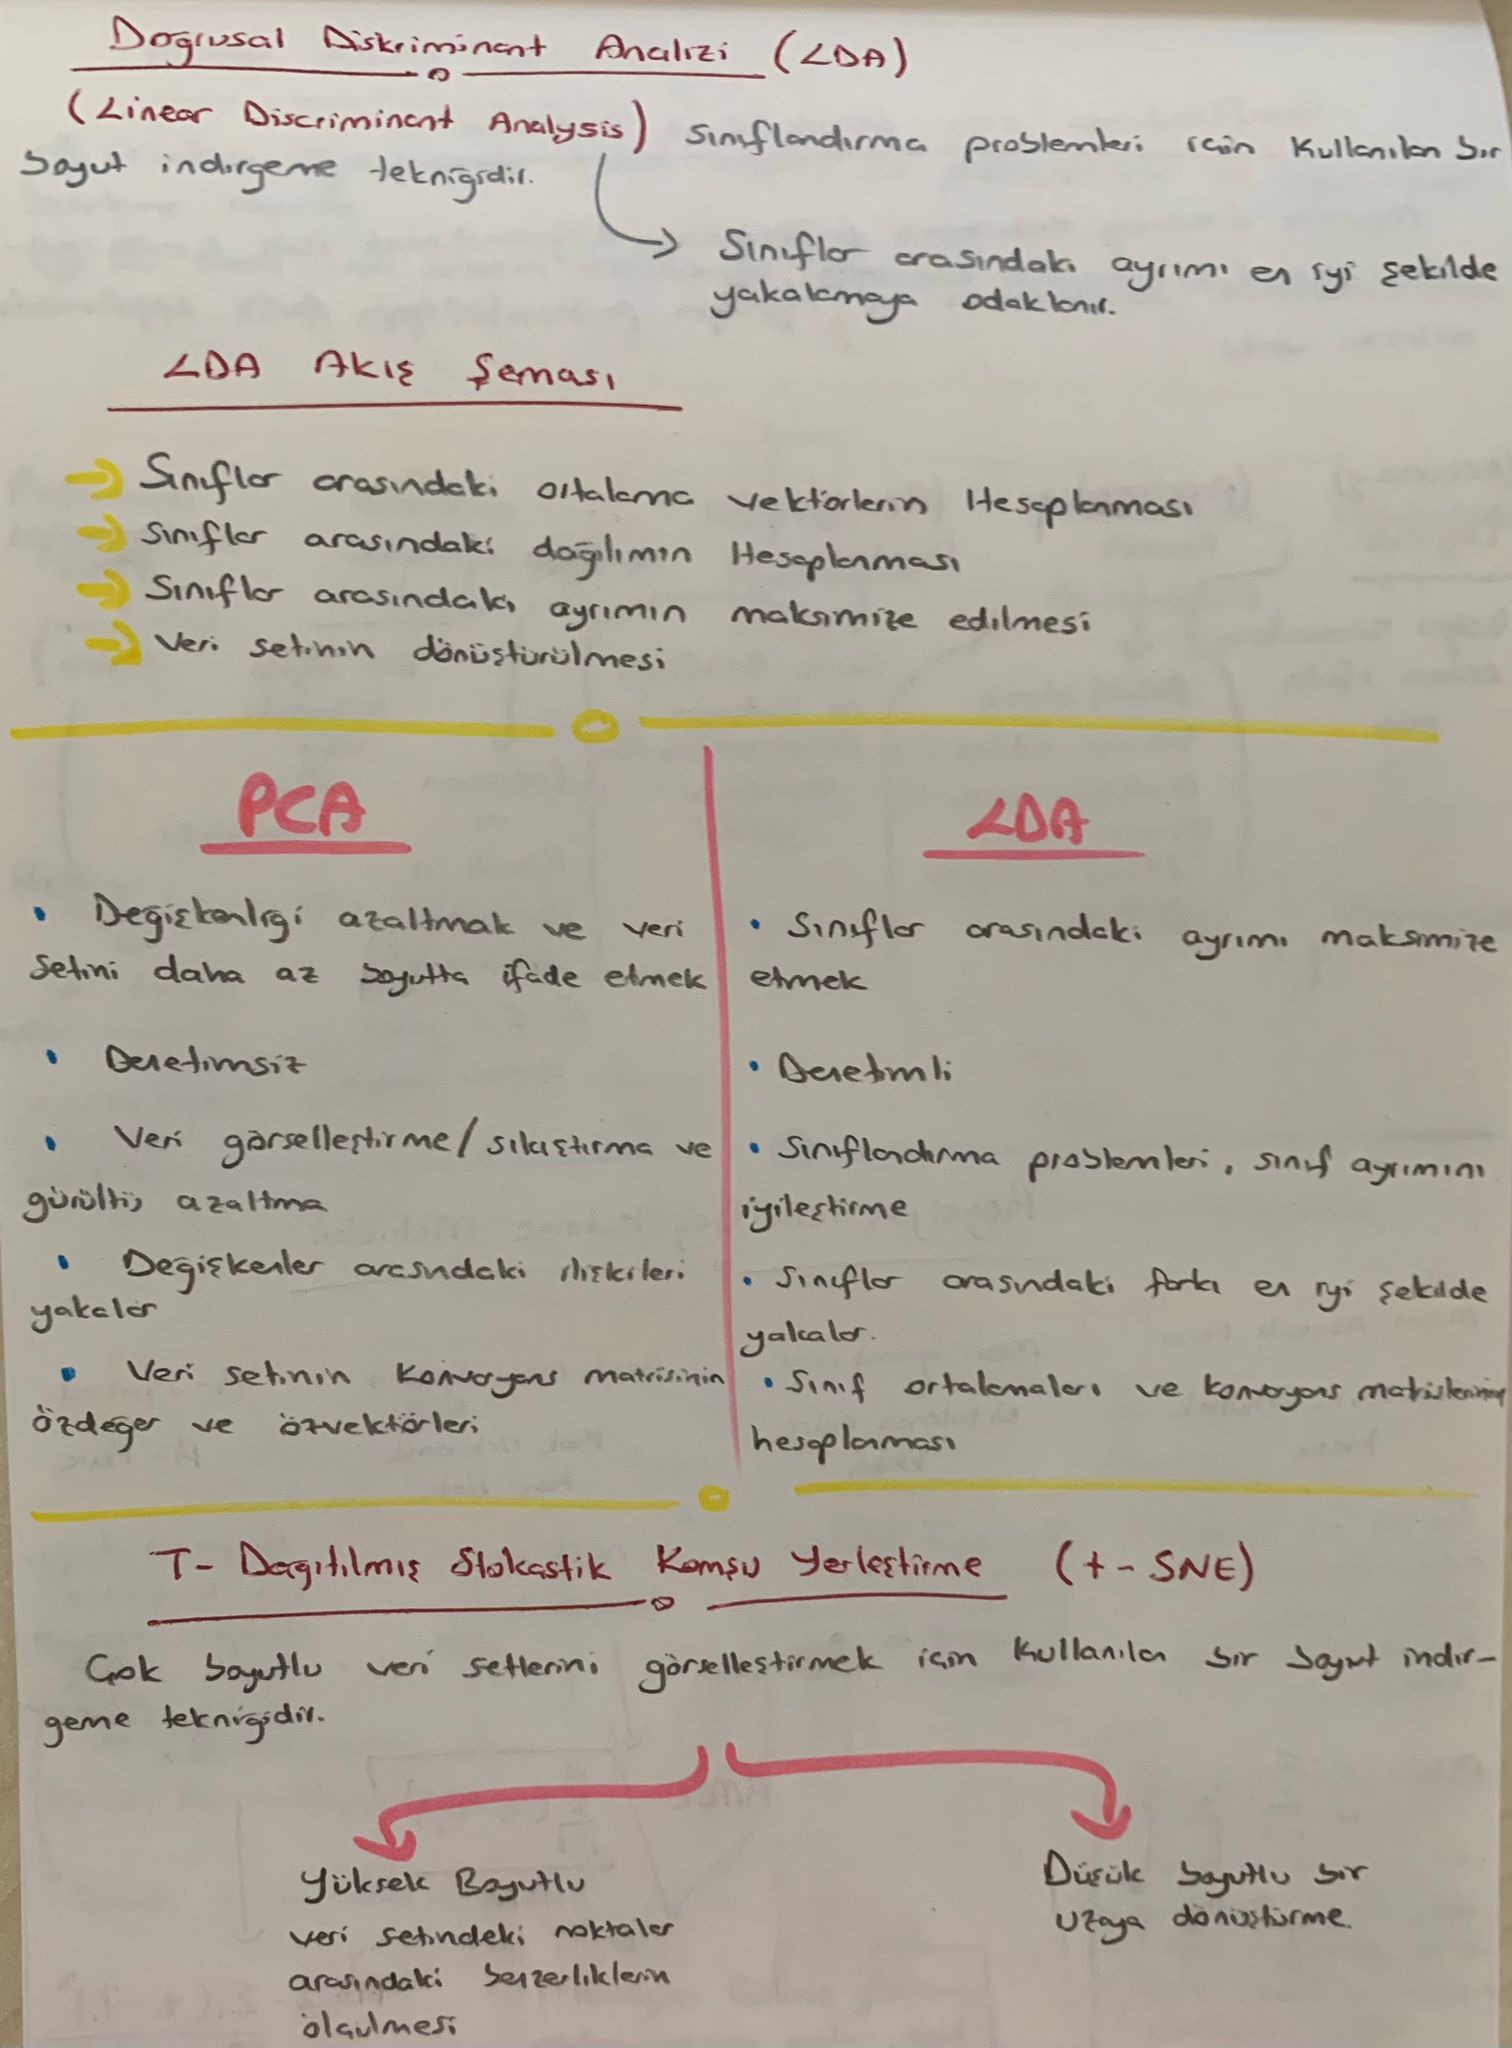 Doğrusal Diskriminant Analizi (LDA)
(Linear Discriminant Analysis) Sınıflandırma problemleri için kullanılan bir
boyut indirgeme tekniğidir.
Sınıflar arasındaki ayrımı en iyi şekilde
yakalamaya odaklanır.
LDA Akış Şeması
Sınıflar arasındaki ortalama vektörlerin Hesaplanması
Sınıflar arasındaki dağılımın Hesaplanması
Sınıflar arasındakı ayrımın maksimize edilmesi
Veri setinin dönüştürülmesi
PCA
• Değişkenliği azaltmak ve veri
setini daha az boyutta ifade etmek
• Denetimsiz
• Veri görselleştirme/sıkıştırma ve
gürültü azaltma
• Değişkenler arasındaki ilişkileri
yakalar
• Veri setinin Konvoryans matrisinin
özdeğer ve özvektörleri
LDA
• Sınıflar arasındaki ayrımı maksimize
etmek
• Denetimli
• Sınıflandırma problemleri, sınıf ayrımını
iyileştirme
• Sınıflar arasındaki farkı en iyi şekilde
yakalar.
• Sınıf ortalamaları ve konvoryans matrislerinin
hesaplanması
T- Dağıtılmış Stokastik Komşu Yerleştirme (t-SNE)
Çok boyutlu veri setlerini görselleştirmek için kullanılan bir boyut indir-
geme tekniğidir.
Yüksek Boyutlu
veri setindeki noktalar
arasındaki benzerliklerin
ölçülmesi
Düşük boyutlu bir
uzaya dönüştürme.